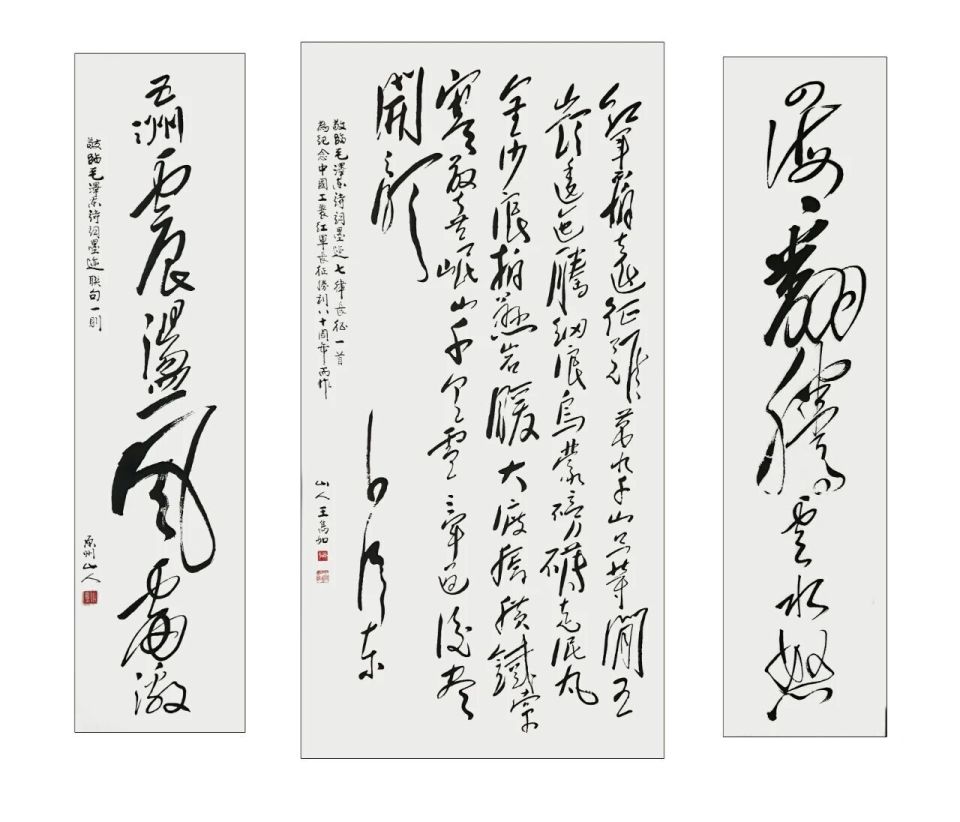 四海翻騰雲水怒
紅軍不怕遠征難萬水千山只等閒五
嶺逶迤騰細浪烏蒙磅礴走泥丸
金沙浪拍懸岩暖大渡橋橫鐵索
寒更喜岷山千里雪三軍過後盡
開顏
毛澤東
敬臨毛澤東詩詞墨迹七律長征一首
為紀念中國工農紅軍長征勝利八十周年而作 山人王為如
五洲震盪風雷激
敬臨毛澤東詩詞墨迹聯句一則
原州山人